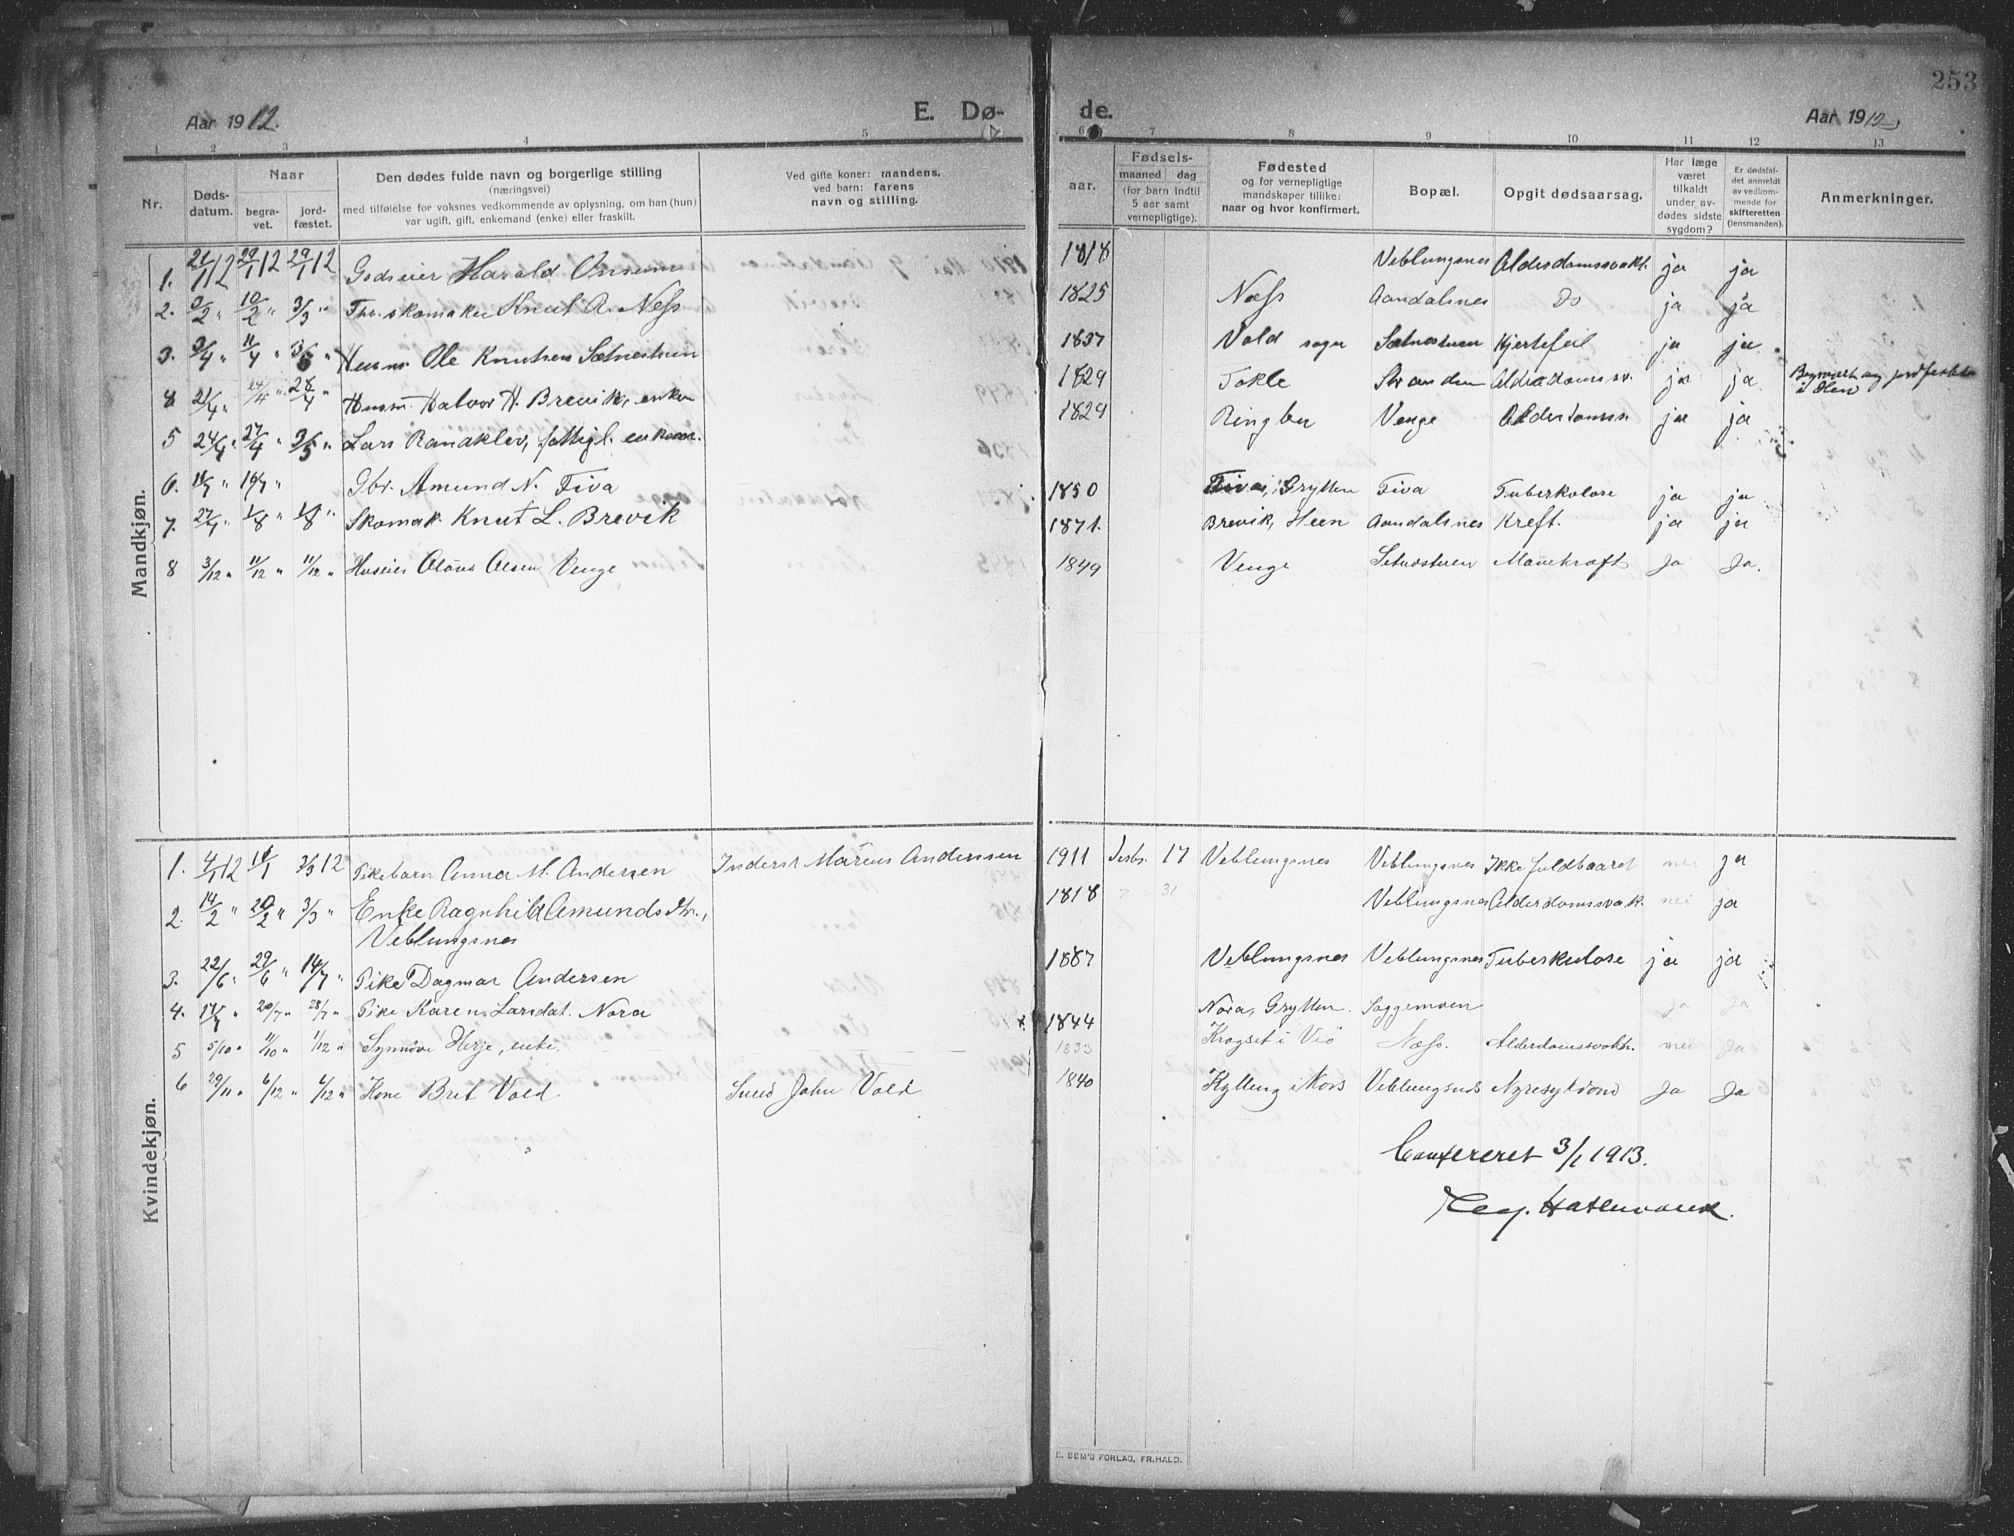 253
Aar 1912.
E. Dø-
de.
Aar 1912
1 2 3 4 5 6 7 8 9 10 11 12 13
Nr.
Døds-
datum.
Naar
begra-
vet.
jord-
fæstet.
Den dødes fulde navn og borgerlige stilling
(næringsvei)
med tilføielse for voksnes vedkommende av oplysning, om han (hun)
var ugift, gift, enkemand (enke) eller fraskilt.
Ved gifte koner: mandens,
ved barn: farens
navn og stilling.
aar.
Fødsels-
maaned dag
(for barn indtil
5 aar samt
vernepligtige).
Fødested
og for vernepligtige
mandskaper tillike:
naar og hvor konfirmert.
Bopæl.
Opgit dødsaarsag.
Har læge
været
tilkaldt
under av-
dødes sidste
sygdom?
Er dødsfal-
det anmeldt
av vedkom-
mende for
skifteretten
(lensmanden).
Anmerkninger.
Mandkjøn.
1. 21/1 12 29/1 12 29/1 12 Godseier Harald Onsum 1818 Veblungsnes Alderdomssvakh. ja ja
2. 2/2 " 10/2 " 3/3 " Fhv. skomaker Knut A. Næss 1825 Næss Aandalsnes Do ja ja
3. 3/4 " 11/4 " 3/6 " Husm. Ole Knutsen Sætnestuen 1837 Vold sogn Sætnestuen Hjertefeil ja ja
4. 21/4 " 24/4 " 28/4 Husm. Halvor H. Brevik, enkem 1829 Tokle Stranden Alderdomssv. ja ja Begravet og jordfæstet
i Hen
5 24/4 " 27/4 " 3/5 " Lars Ranaklev, fattigl. enkem. 1829 Ringbu Venge Alderdomss. ja ja
6. 14/7 " 19/7 " Gbr. Amund N. Fiva 1850 Fiva, i Grytten Fiva Tuberkulose ja ja
7. 27/7 " 1/8 " 1/8 " Skomak. Knut L. Brevik 1871. Brevik, Heen Aandalsnes Kreft. ja ja
8 3/12 " 11/12 " 11/12 " Huseier Olaus Olsen Venge 1849 Venge Setnestuen Mavekræft Ja Ja.
Kvindekjøn.
1. 4/1 12 11/1 3/3 12 Pikebarn Anna M. Andersen Inderst Marius Anderssen 1911 Desbr. 17 Veblungsnes Veblungsnes Ikke fuldbaaret nei ja
2. 14/2 " 20/2 " 3/3 " Enke Ragnhild Amundsdtr., 1818 " 31 Veblungsnes Alderdomssvak. nei ja
Veblungsnes
3. 22/6 " 29/6 " 14/7 " Pike Dagmar Andersen 1887 Veblungsnes Veblungsnes Tuberkulose ja ja
4. 14/7 " 20/7 " 28/7 " Pike Karen Larsdat. Nora 1844 Nora, Grytten. Soggemoen ja Ja
5 5/10 " 11/10 " 1/12 " Synnøve Herje, enke. 1833 Krogset i Viø Næss. Alderdomssvakh. nei Ja
6 29/11 " 6/12 " 6/12 " Kone Brit Vold Smed John Vold 1840 Kylling i Kors Veblungsnes Nyresykdom Ja Ja
Confereret 3/1 1913.
D. BEM'S FORLAG, FR.HALD.